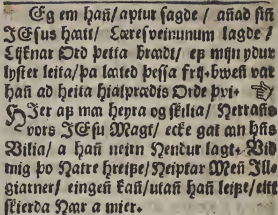 Eg em han/ aptur sagde / añad siñ
JEsus hatt/ Læresveinunum lagde /
Lijknar Ord þetta brædt/ eg mijn ydur
lyster leita/ þa lated þessa frij- hvert var
hañ ad heita hialprædis Orde þvi-
HJer aþ ma heyra og skilia / Herrañs
vors JEsu Magt/ ecke gat añ hñs
Vilia/ a hañ neirn Hendur lagt- Vid
mig þo Natre hreiþe/ Heiptar Meñ Jll-
giarner/ eingeñ kañ/ utañ hañ leiþe/ ellt
skierda Hær a mier-